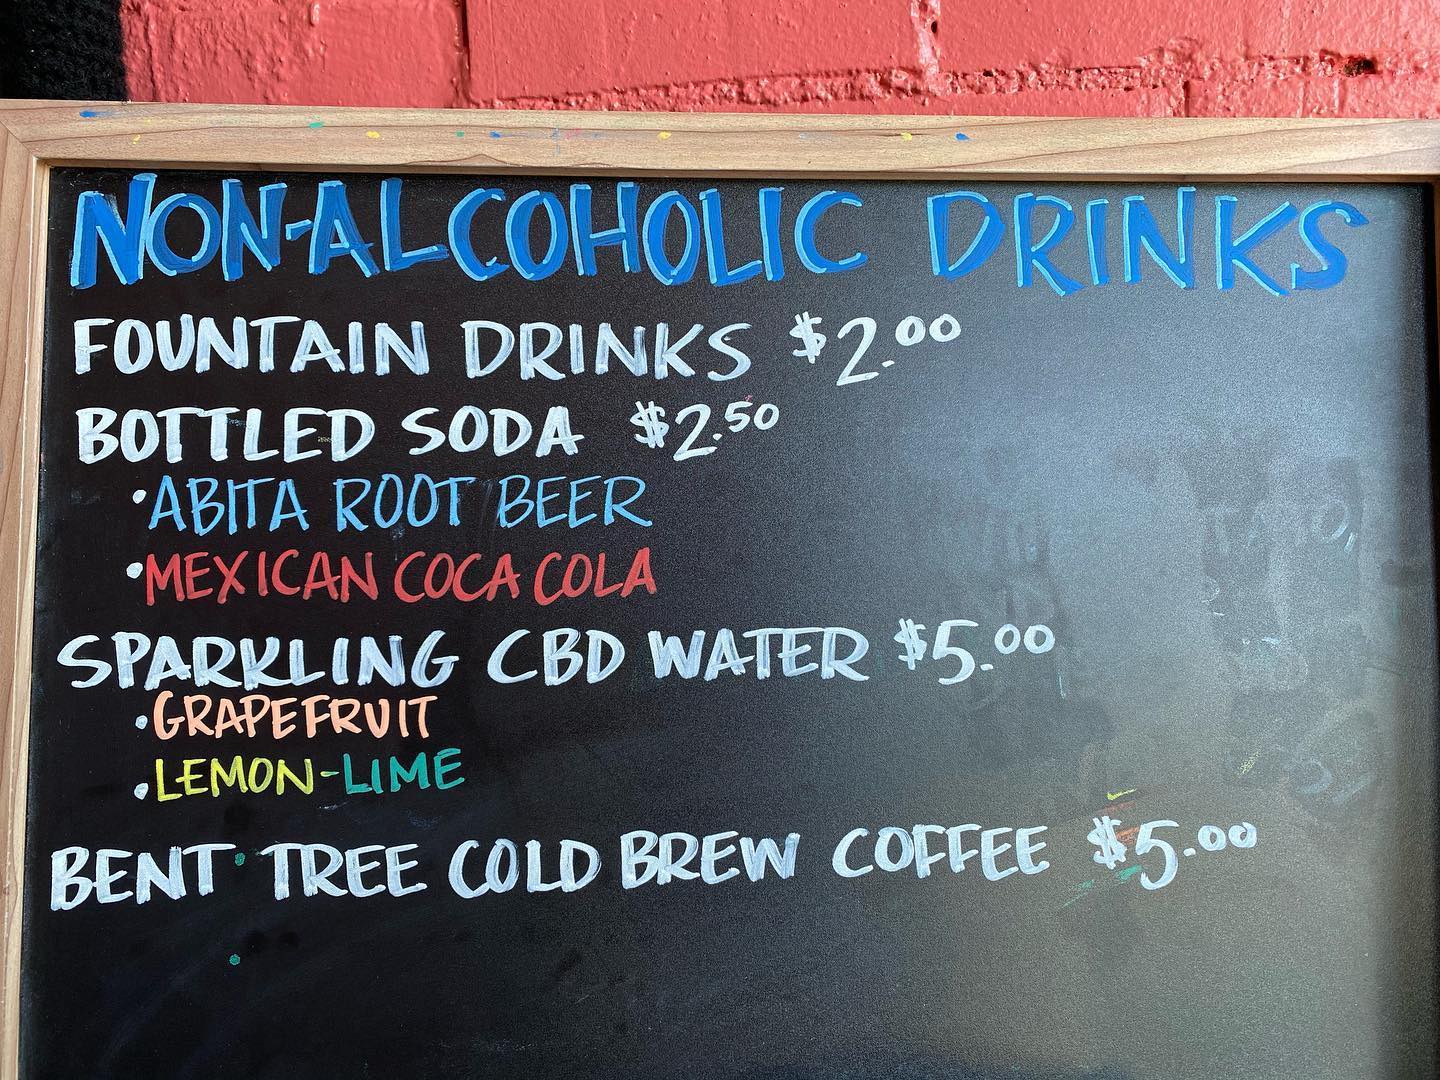 NON-ALCOHOLIC DRINKS
FOUNTAIN DRINKS $2.00
BOTTLED SODA $2.50
•ABITA ROOT BEER
•MEXICAN COCA COLA
SPARKLING CBD WATER $5.00
•GRAPEFRUIT
•LEMON-LIME
BENT TREE COLD BREW COFFEE $5.00